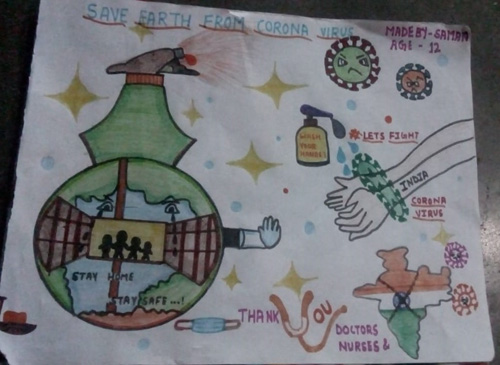 SAVE EARTH FROM CORONA VIRUS
MADE BY-SAMAN
AGE - 12
WASH
YOUR
HANDS!
LETS FIGHT
INDIA
CORONA
VIRUS
STAY HOME
STAY SAFE...!
THANK YOU
DOCTORS
NURSES &